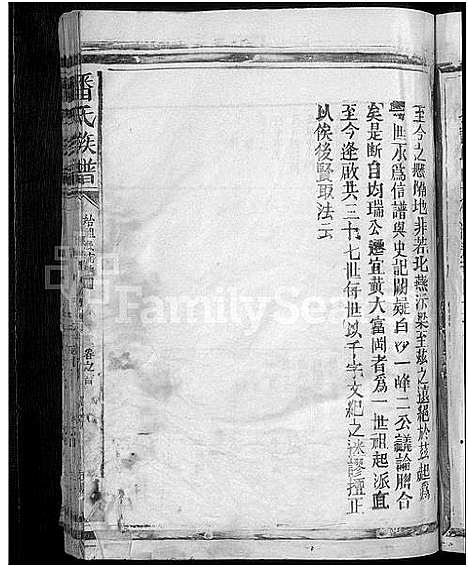 至今之懸隔地非若北燕汴梁至茲之遠絕於茲起爲
一世永爲信譜與史記闕疑白沙一峰二公議論脗合
矣是斷自均瑞公遷宜黃大富岡者爲一世祖起派直
至今逢啟共三十七世每世以千字文紀之迷謬擅正
以俟後賢取法云
潘氏族譜
卷之首
FamilySearch